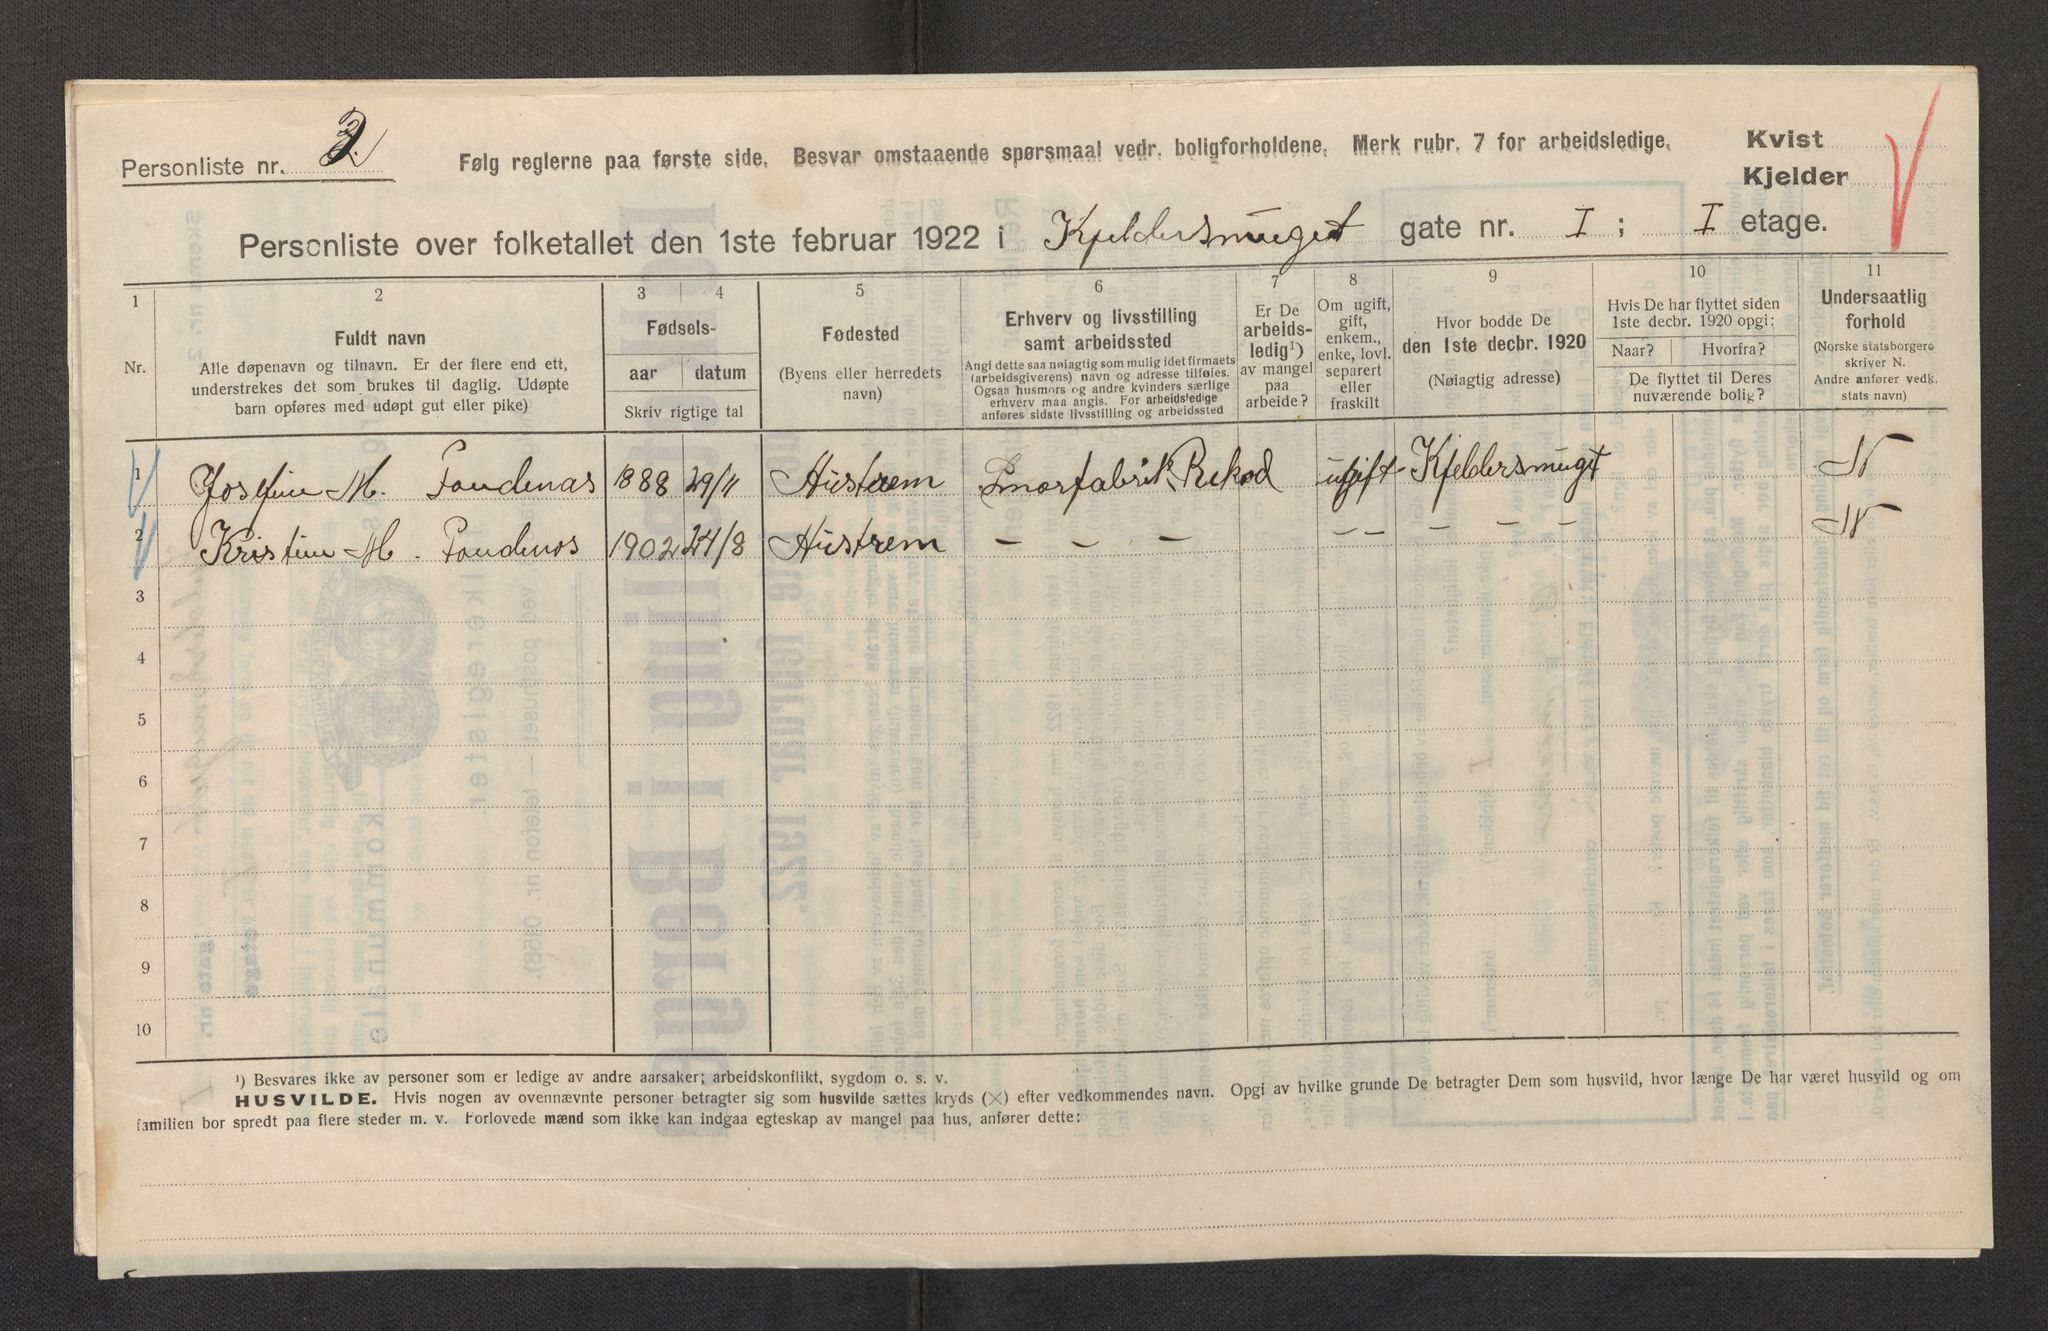 Personliste nr. 3.
Følg reglerne paa første side. Besvar omstaaende spørsmaal vedr. boligforholdene. Merk rubr. 7 for arbeidsledige.
Kvist
Kjelder
Personliste over folketallet den 1ste februar 1922 i Kjeldersmuget gate nr. I ; I etage.
1 2 3 4 5 6 7 8 9 10 11
Nr.
Fuldt navn
Alle døpenavn og tilnavn. Er der flere end ett,
understrekes det som brukes til daglig. Udøpte
barn opføres med udøpt gut eller pike)
Fødsels-
aar datum
Skriv rigtige tal
Fødested
(Byens eller herredets
navn)
Erhverv og livsstilling
samt arbeidssted
Angi dette saa nøiagtig som mulig idet firmaets
(arbeidsgiverens) navn og adresse tilføies.
Ogsaa husmors og andre kvinders særlige
erhverv maa angis. For arbeidsledige
anføres sidste livsstilling og arbeidssted
Er De
arbeids-
ledig¹)
av mangel
paa
arbeide?
Om ugift,
gift,
enkem.,
enke, lovl.
separert
eller
fraskilt
Hvor bodde De
den 1ste decbr. 1920
(Nøiagtig adresse)
Hvis De har flyttet siden
1ste decbr. 1920 opgi:
Naar? Hvorfra?
De flyttet til Deres
nuværende bolig?
Undersaatlig
forhold
(Norske statsborgere
skriver N.
Andre anfører vedk.
stats navn)
1 Josefine M. Fondenas 1888 29/11 Hustrem Smørfabrik Rekod ugift Kjeldersmuget N
2 Kristine M. Fondenos 1902 24/8 Hustrem — — — — — — — — — N
3
4
5
6
7
8
9
10
¹) Besvares ikke av personer som er ledige av andre aarsaker; arbeidskonflikt, sygdom o. s. v.
HUSVILDE. Hvis nogen av ovennævnte personer betragter sig som husvilde sættes kryds (×) efter vedkommendes navn. Opgi av hvilke grunde De betragter Dem som husvild, hvor længe De har været husvild og om
familien bor spredt paa flere steder m. v. Forlovede mænd som ikke kan indgaa egteskap av mangel paa hus, anfører dette: